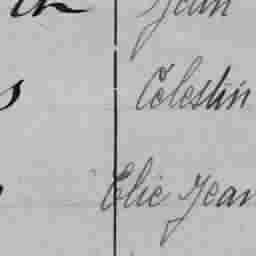 Jean
Célestin
Elie Jean